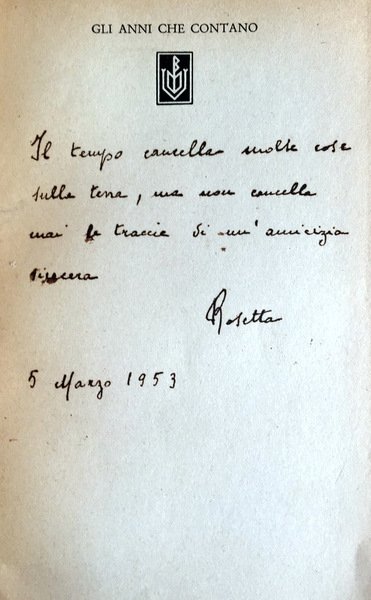 GLI ANNI CHE CONTANO
Il tempo cancella molte cose
sulla terra, ma non cancella
mai le traccie di un'amicizia
sincera
Rosetta
5 Marzo 1953